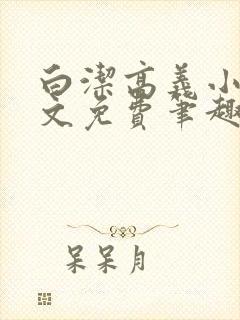 白潔高義小
文免費筆趣
呆呆月